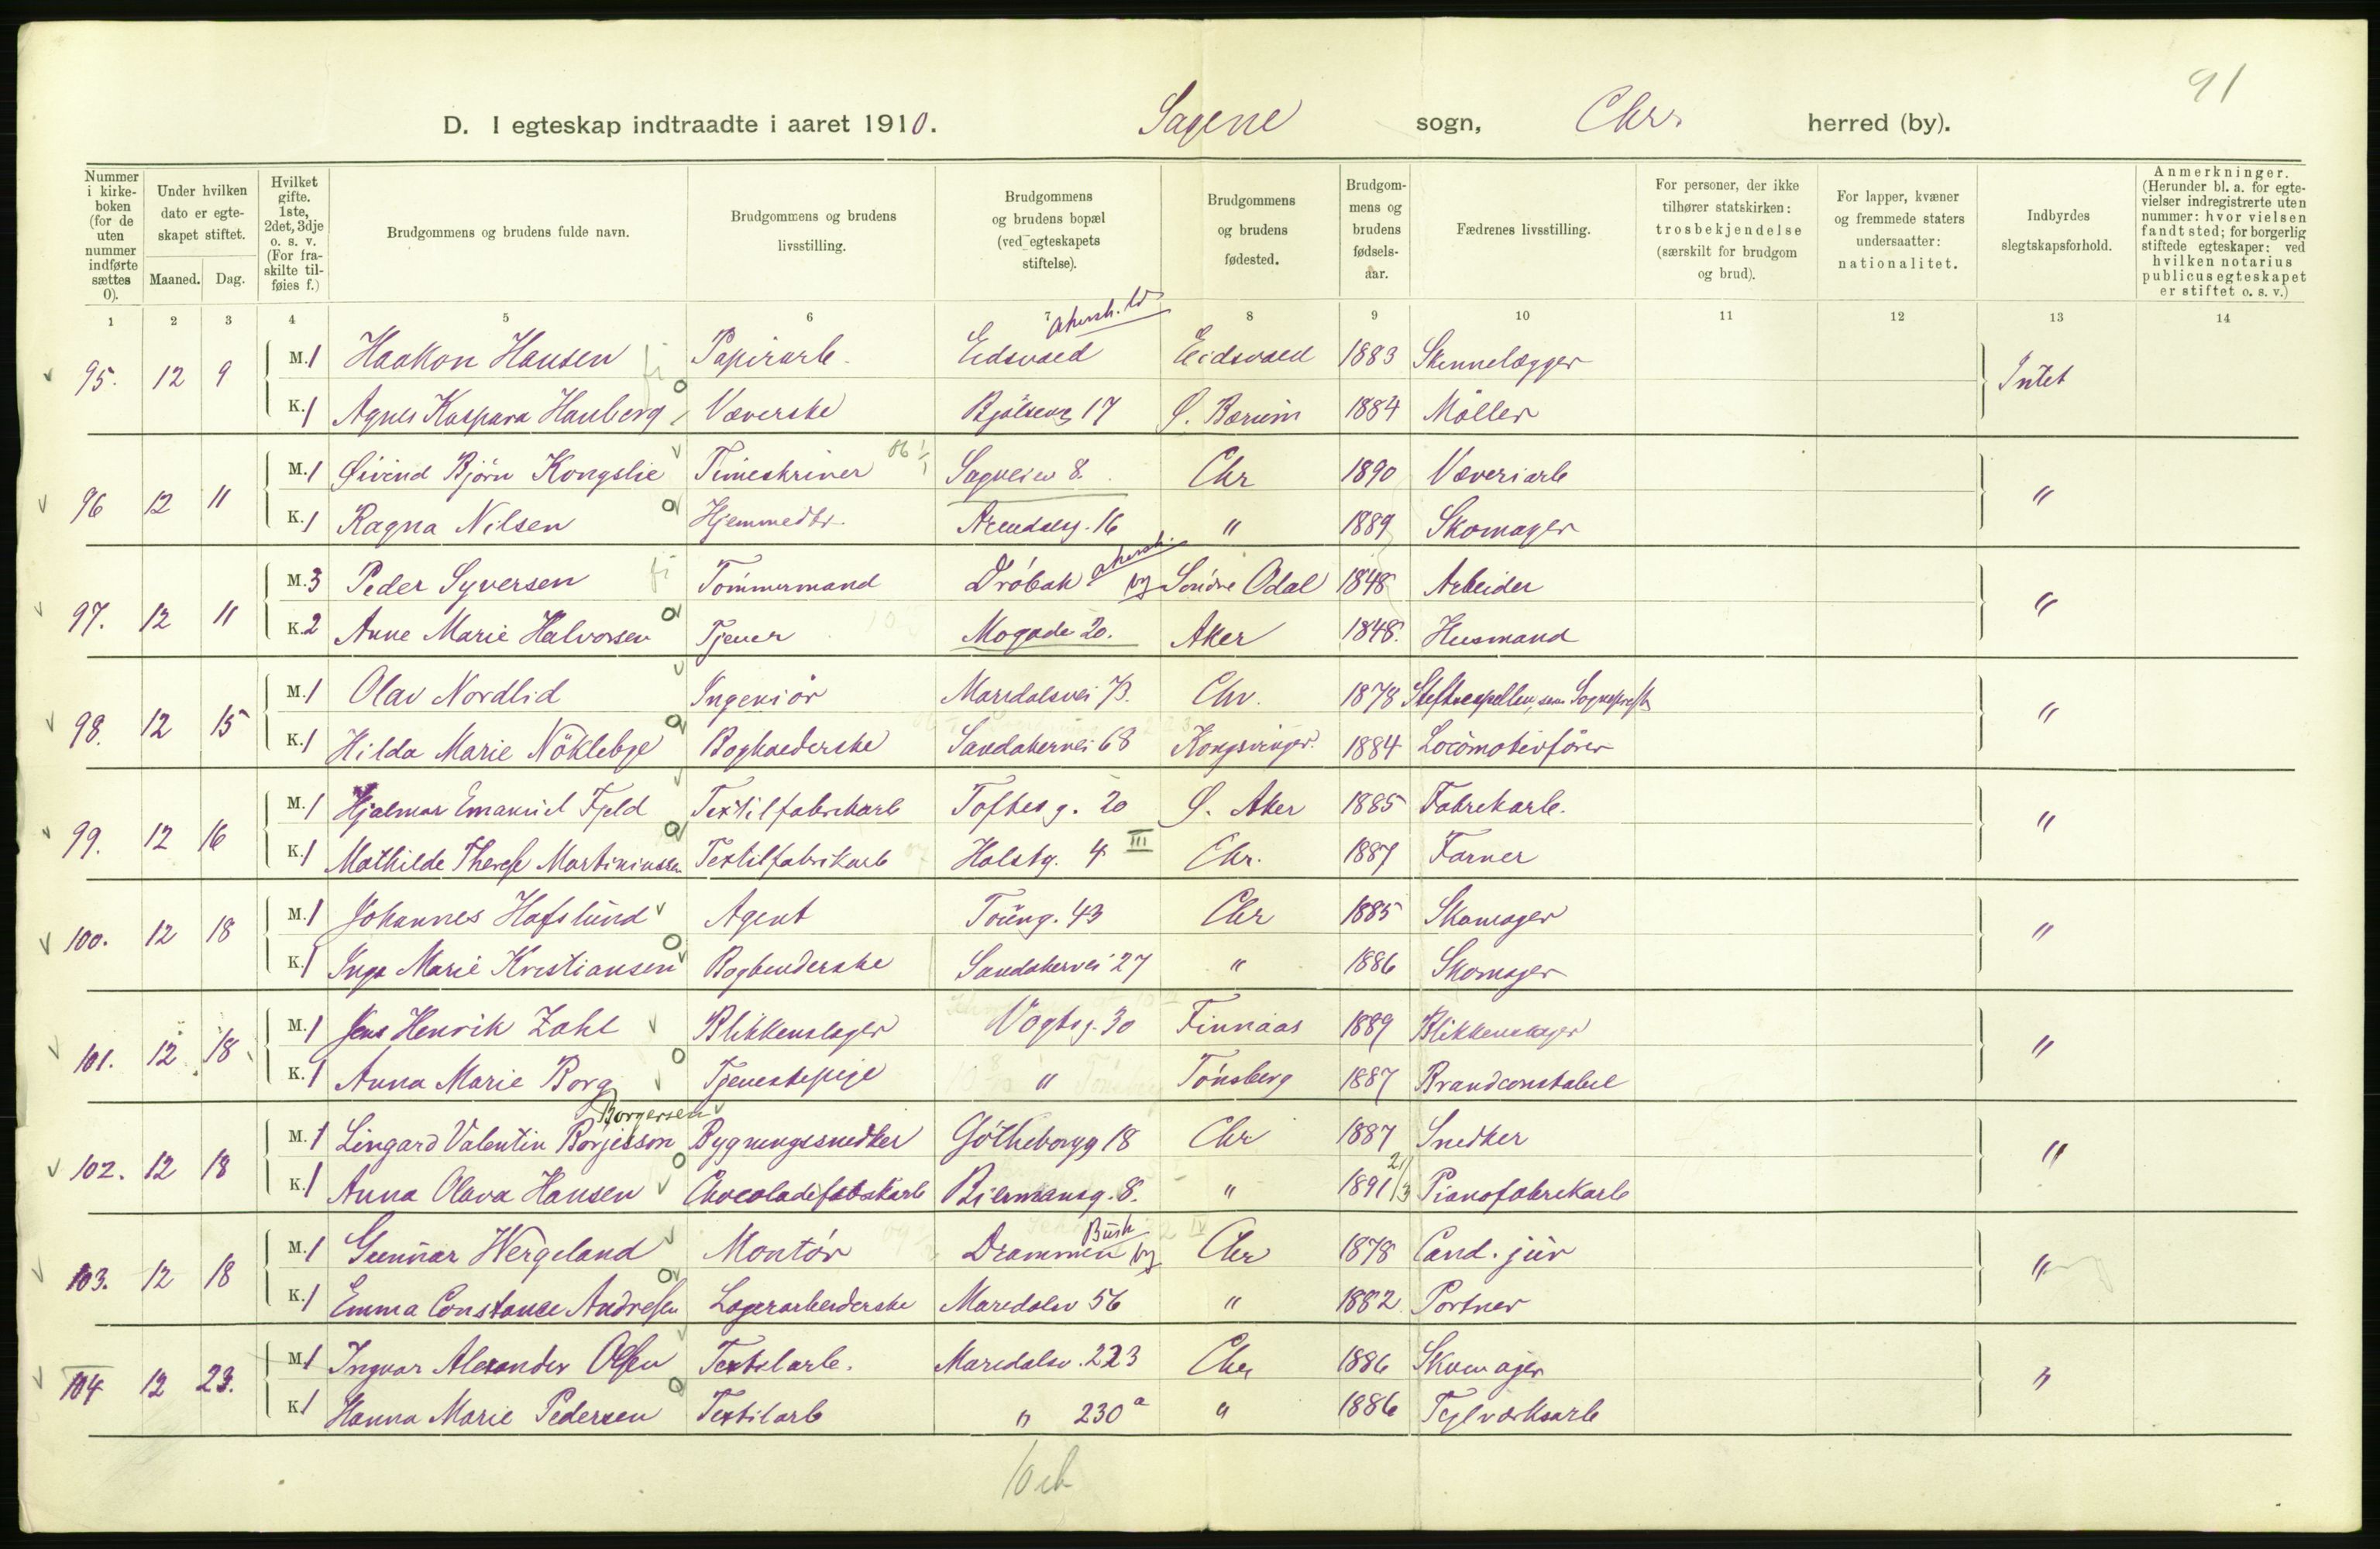 91
D. I egteskap indtraadte i aaret 1910. Sagene sogn, Chr. herred (by).
Nummer i kirkeboken (for de uten nummer indførte sættes 0).
Under hvilken dato er egteskapet stiftet.
Maaned. Dag.
Hvilket gifte. 1ste, 2det, 3dje o. s. v. (For fraskilte tilføies f.)
Brudgommens og brudens fulde navn.
Brudgommens og brudens livsstilling.
Brudgommens og brudens bopæl (ved egteskapets stiftelse).
Brudgommens og brudens fødested.
Brudgommens og brudens fødselsaar.
Fædrenes livsstilling.
For personer, der ikke tilhører statskirken: trosbekjendelse (særskilt for brudgom og brud).
For lapper, kvæner og fremmede staters undersaatter: nationalitet.
Indbyrdes slegtskapsforhold.
Anmerkninger. (Herunder bl. a. for egtevielser indregistrerte uten nummer: hvor vielsen fandt sted; for borgerlig stiftede egteskaper: ved hvilken notarius publicus egteskapet er stiftet o. s. v.)
1 2 3 4 5 6 7 8 9 10 11 12 13 14
Akersh.
95. 12 9 M. 1 Haakon Hansen Papirarb. Eidsvold Eidsvold 1883 Skinnelægger Intet
K. 1 Agnes Kaspara Hauberg Væverske Bjölseng 17 Ø. Bærum 1884 Möller
96 12 11 M. 1 Øivind Björn Kongslie Timeskriver Sagveien 8. Chr 1890 Væveriarb "
K. 1 Ragna Nilsen Hjemmedtr. Arendalsg. 16 " 1889 Skomager
Akersh.
97. 12 11 M. 3 Peder Syversen Tömmermand Dröbak Söndre Odal 1848 Arbeider "
K. 2 Anne Marie Halvorsen Tjener Mogade 20. Aker 1848. Husmand
98. 12 15 M. 1 Olav Nordlid Ingeniör Maridalsvei 73. Chr. 1878 Sogneprest "
K. 1 Hilda Marie Nöklebye Boghalderske Sandakervei 68 Kongsvinger. 1884 Locomotivförer
99. 12 16 M. 1 Hjalmar Emanuel Fjeld Textilfabrikarb Toftesg. 20 Ø. Aker 1885 Fabrikarb. "
K. 1 Mathilde Therese Martiniussen Textilfabrikarb Holstg. 4 III Chr. 1887 Farver
100. 12 18 M. 1 Johannes Hafslund Agent Toüng. 43 Chr 1885 Skomager "
K. 1 Inga Marie Kristiansen Bogbinderske Sandakervei 27 " 1886 Skomager
101. 12 18 M. 1 Jens Henrik Zahl Blikkenslager Vogtsg. 30 Finnaas 1889 Blikkenslager "
K. 1 Anna Marie Borg Tjenestepige " Tönsberg 1887 Brandconstabel
Borgersen
102. 12 18 M. 1 Lingard Valentin Borjesson Bygningssnedker Götheborgg 18 Chr 1887 Snedker "
K. 1 Anna Olava Hansen Chocoladefabrikarb Biermansg. 8. " 1891 21/3 Pianofabrikarb
Busk
103. 12 18 M. 1 Gunnar Wergeland Montör Drammen Chr 1878 Cand. jur "
K. 1 Emma Constance Andresen Lagerarbeiderske Maridalsv 56 " 1882 Portner
104 12 23. M. 1 Ingvar Alexander Olsen Textilarb. Maridalsv. 223 Chr 1886 Skomager "
K. 1 Hanna Marie Pedersen Textilarb " 230a " 1886 Teglværksarb